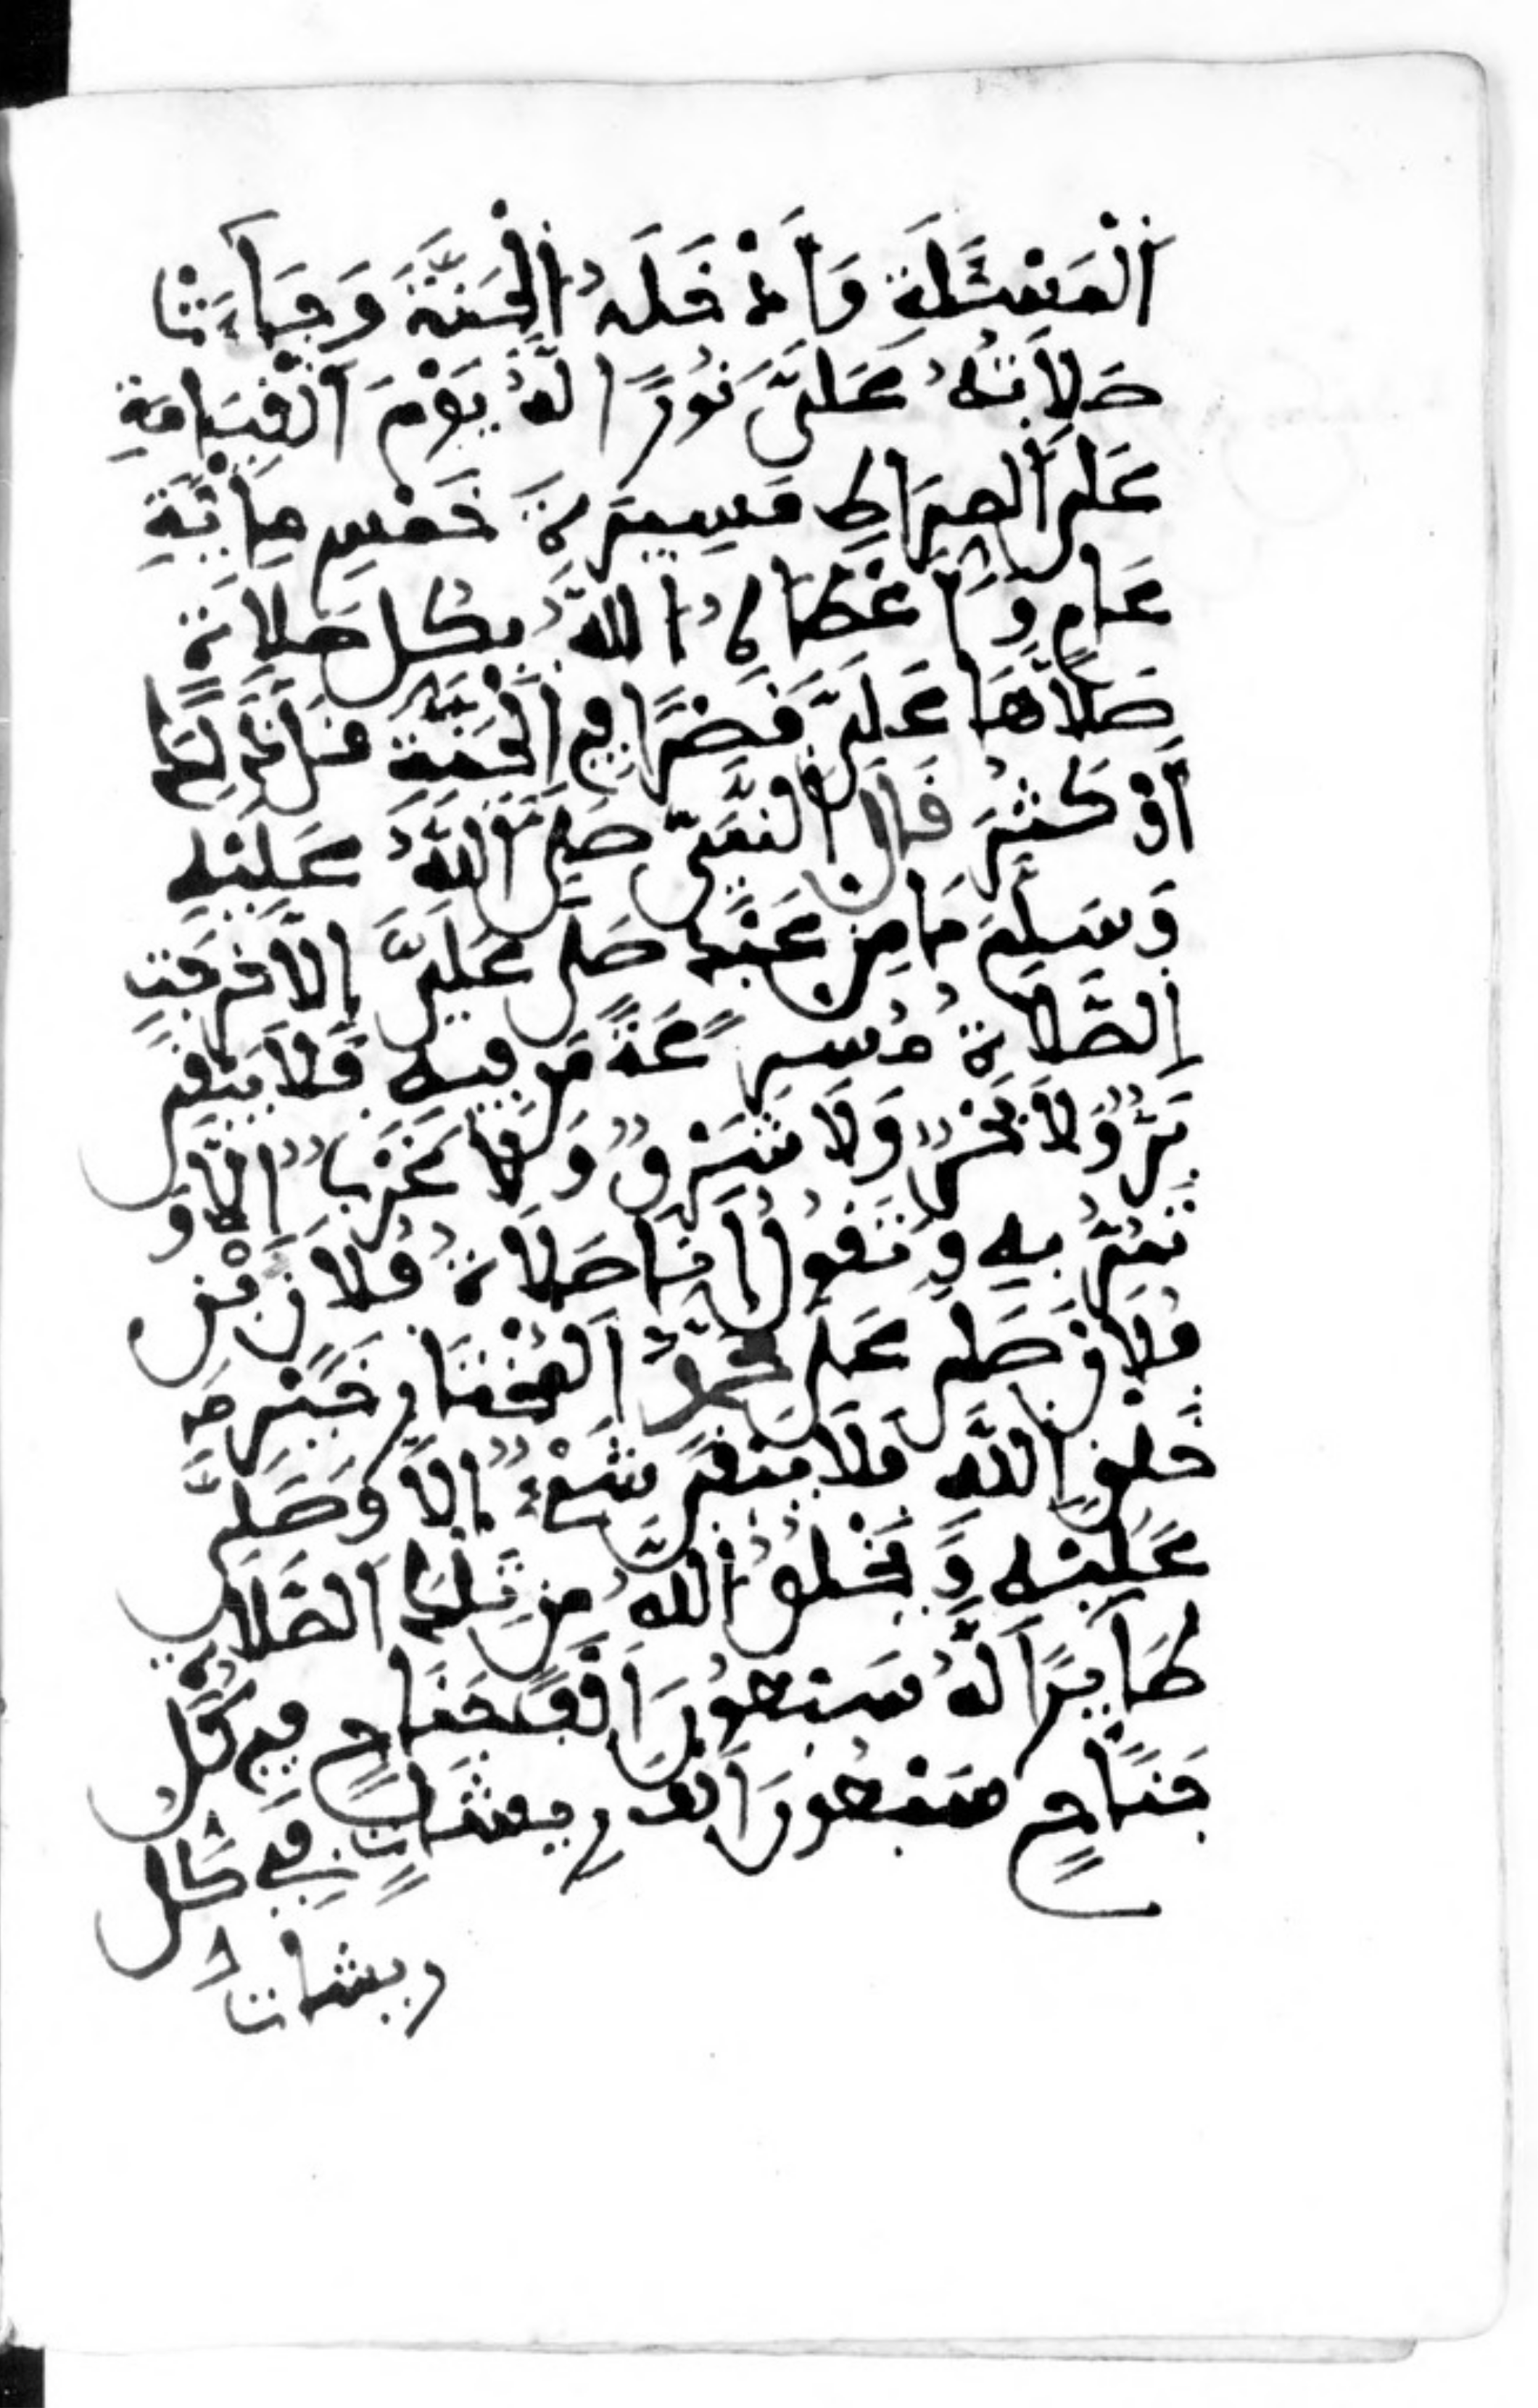 الْمَسْئَلَةِ وَأَدْخَلَهُ الْجَنَّةَ وَجَاءَتْ
صَلَاتُهُ عَلَىَّ نُورًا لَّهُ يَوْمَ الْقِيَامَةِ
عَلَى الصِّرَاطِ مَسِيرَةَ خَمْسِ مِائَةِ
عَامٍ وَأَعْطَاهُ اللَّهُ بِكُلِّ صَلَاةٍ
صَلَّاهَا عَلَيَّ قَصْرًا فِي الْجَنَّةِ قَلَّ ذَلِكَ
أَوْ كَثُرَ قَالَ النَّبِيُّ صَلَّى اللَّهُ عَلَيْهِ
وَسَلَّمَ مَا مِنْ عَبْدٍ صَلَّى عَلَيَّ إِلَّا خَرَجَتِ
الصَّلَاةُ مُسْرِعَةً مِّن فِيهِ فَلَا يَبْقَى
بَرٌّ وَلَا بَحْرٌ وَلَا شَرْقٌ وَلَا غَرْبٌ إِلَّا وَ
تَمُرُّ بِهِ وَتَقُولُ أَنَا صَلَاةُ فُلَانِ بْنِ
فُلَانٍ صَلَّى عَلَى مُحَمَّدٍ الْمُخْتَارِ خَيْرِ
خَلْقِ اللَّهِ فَلَا يَبْقَى شَيْءٌ إِلَّا وَصَلَّى
عَلَيْهِ وَيَخْلُقُ اللَّهُ مِن تِلْكَ الصَّلَاةِ
طَايِرًا لَّهُ سَبْعُونَ أَلْفَ جَنَاحٍ فِي كُلِّ
جَنَاحٍ سَبْعُونَ أَلْفَ رِيشَاتٍ فِي كُلِّ
ريشات